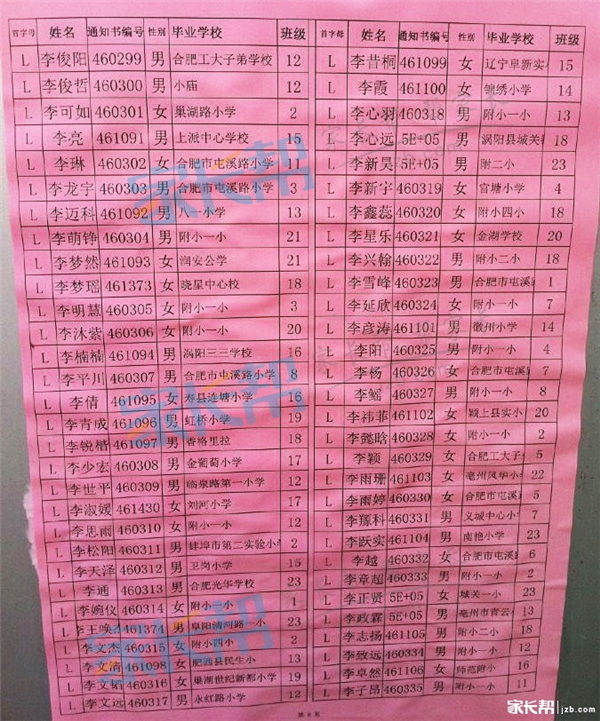 首字母 姓名 通知书编号 性别 毕业学校 班级
L 李俊阳 460299 男 合肥工大子弟学校 12
L 李俊哲 460300 男 小庙 12
L 李可如 460301 女 巢湖路小学 2
L 李亮 461091 男 上派中心学校 15
L 李琳 460302 女 合肥市屯溪路小学 11
L 李龙宇 460303 男 合肥市屯溪路小学 3
L 李迈科 461092 男 八一小学 13
L 李萌铮 460304 男 附小一小 21
L 李梦然 461093 女 润安公学 21
L 李梦瑶 461373 女 晓星中心校 18
L 李明慧 460305 女 附小一小 3
L 李沐紫 460306 女 附小一小 20
L 李楠楠 461094 男 涡阳三三学校 16
L 李平川 460307 男 合肥市屯溪路小学 8
L 李倩 461095 女 寿县连塘小学 16
L 李青成 461096 男 虹桥小学 19
L 李锐楷 461097 男 香格里拉 18
L 李少宏 460308 男 金葡萄小学 17
L 李世平 460309 男 临泉路第一小学 12
L 李淑媛 461430 女 刘河小学 17
L 李思雨 460310 女 附小一小 12
L 李松阳 460311 男 蚌埠市第二实验小学 2
L 李天泽 460312 男 卫岗小学 15
L 李通 460313 男 合肥光华学校 23
L 李婉仪 460314 女 附小一小 1
L 461374 男 阜阳清河路一小 23
L 李文杰 460315 女 附小四小 2
L 李文清 461098 女 肥西县民生小 13
L 李文韬 460316 女 巢湖世纪新都小学 19
L 李文远 460317 男 永红路小学 12
首字母 姓名 通知书编号 性别 毕业学校 班级
L 李昔桐 461099 女 辽宁阜新实 15
L 李霞 461100 女 锦绣小学 14
L 李心羽 460318 男 附小一小 13
L 李心远 5E+05 男 涡阳县城关 18
L 李新昊 5E+05 男 附二小 23
L 李新宇 460319 女 官塘小学 4
L 李鑫蕊 460320 女 附小四小 18
L 李星乐 460321 女 金湖学校 20
L 李兴翰 460322 男 附小二小 18
L 李雪峰 460323 男 合肥市屯溪 1
L 李延欣 460324 女 附小一小 7
L 李彦涛 461101 男 徽州小学 14
L 李阳 460325 男 附小一小 4
L 李杨 460326 女 合肥市屯溪 7
L 李鳐 460327 男 附小一小 8
L 李祎菲 461102 女 颍上县实小 20
L 李懿晗 460328 女 附小一小 2
L 李颖 460329 女 合肥工大子 5
L 李雨珊 461103 女 亳州风华小 22
L 李雨婷 460330 女 合肥市屯溪 5
L 李豫科 460331 男 义城中心小 7
L 李跃实 461104 男 南艳小学 23
L 李越 460332 女 合肥市屯溪 6
L 李章超 460333 男 附小一小 2
L 李正贤 5E+05 女 城关一小 23
L 李政霖 5E+05 男 亳州市青云 1
L 李志扬 461105 男 附小二小 18
L 李致远 460334 男 附小一小 4
L 李卓然 461106 女 师范附小 16
L 李子昂 460335 男 附小一小 11
家长帮
家长帮
家长帮
家长帮 jzb.com